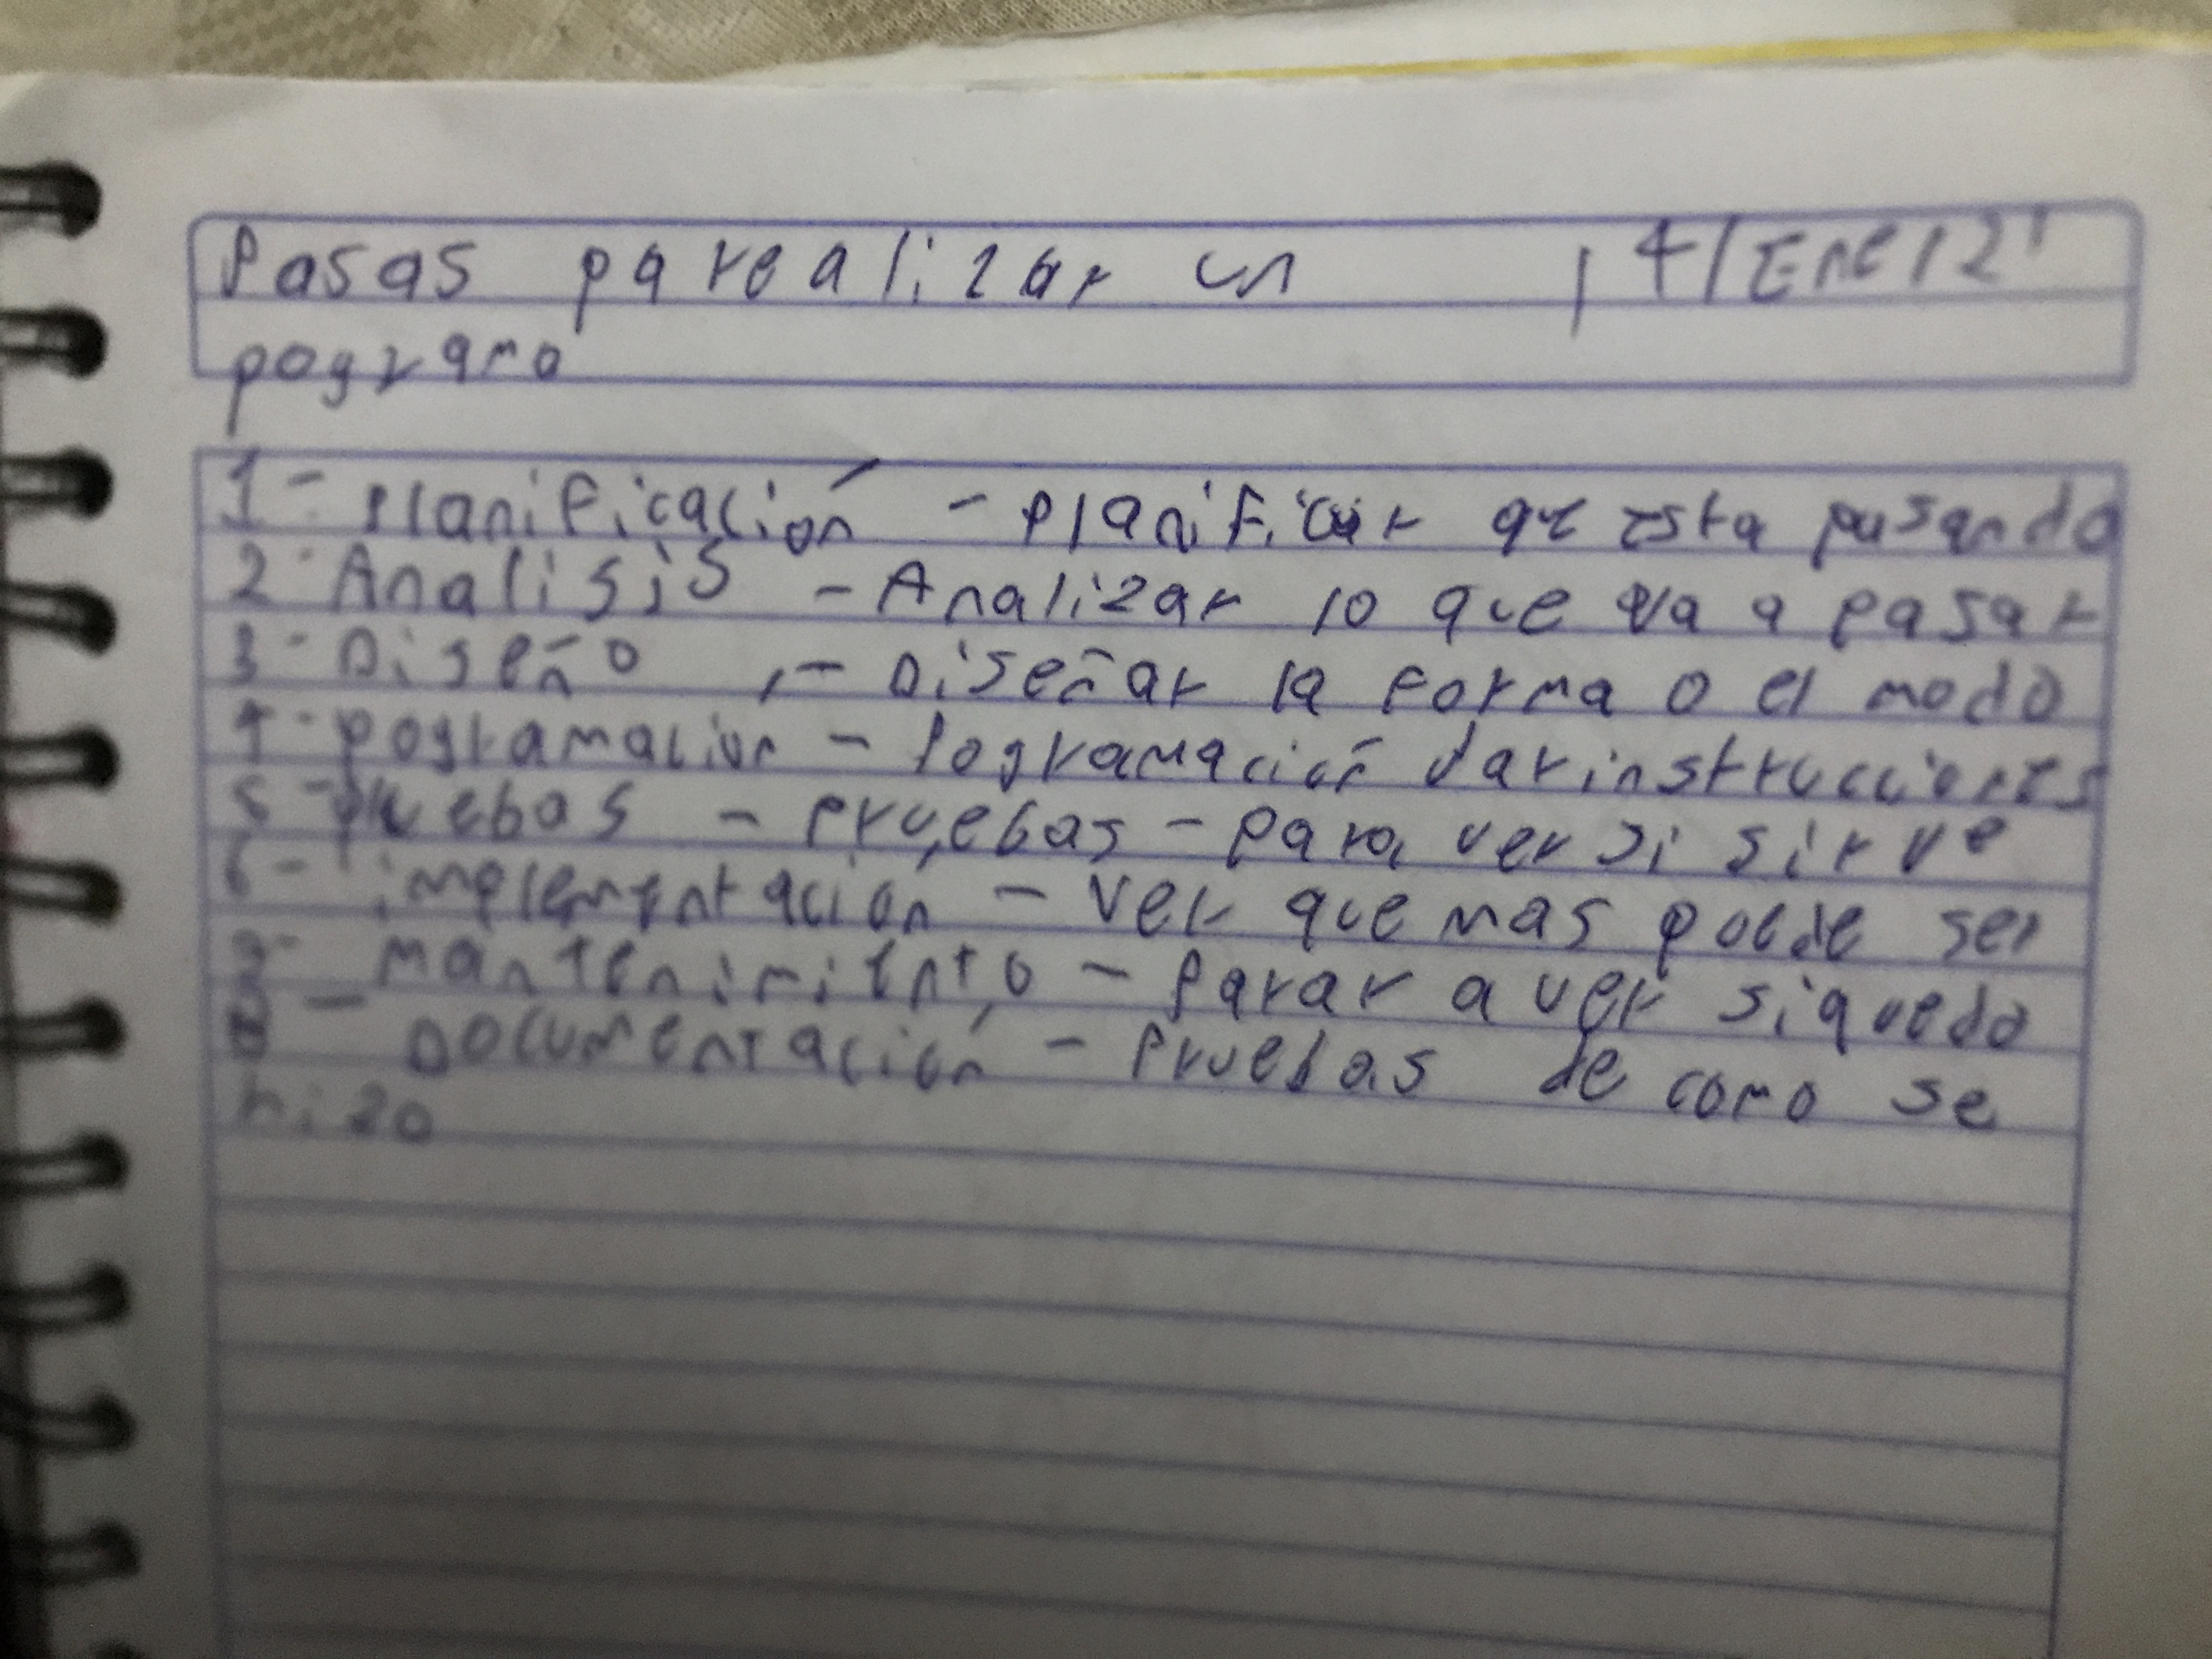 Pasas parealizar un 14/Ene/21
pograma
1- Planificación - Planificar que esta pasando
2- Analisis - Analizar lo que va a pasar
3- Diseño - Diseñar la forma o el modo
4- pogramacion - Pogramación dar instrucciones
5- pruebas - Pruebas - Para ver si sirve
6- implementación - Ver que mas poede ser
mantenimiento - Parar a ver si quedo
8- Documentación - Pruebas de como se
hizo